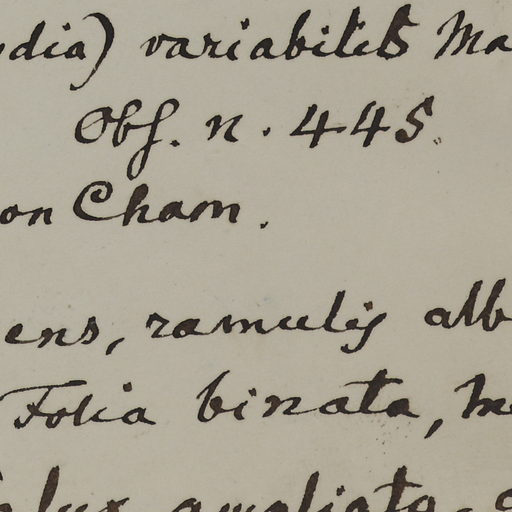 dia) variabilis Ma
Obs. n. 445.
on Cham.
ens, ramulis alb
Folia binata, m
lux ampliata